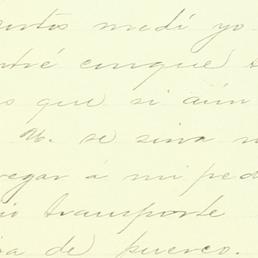 entos medí yo
ntré cinque
s que si aún
U. se sirva
egar á mi ped
io transporte
de puerco.